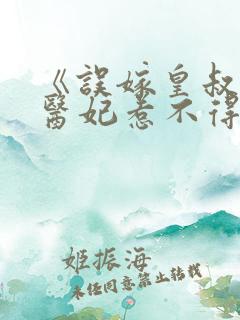 《誤嫁皇叔
醫妃惹不得
姬振海
未任同意禁止转载